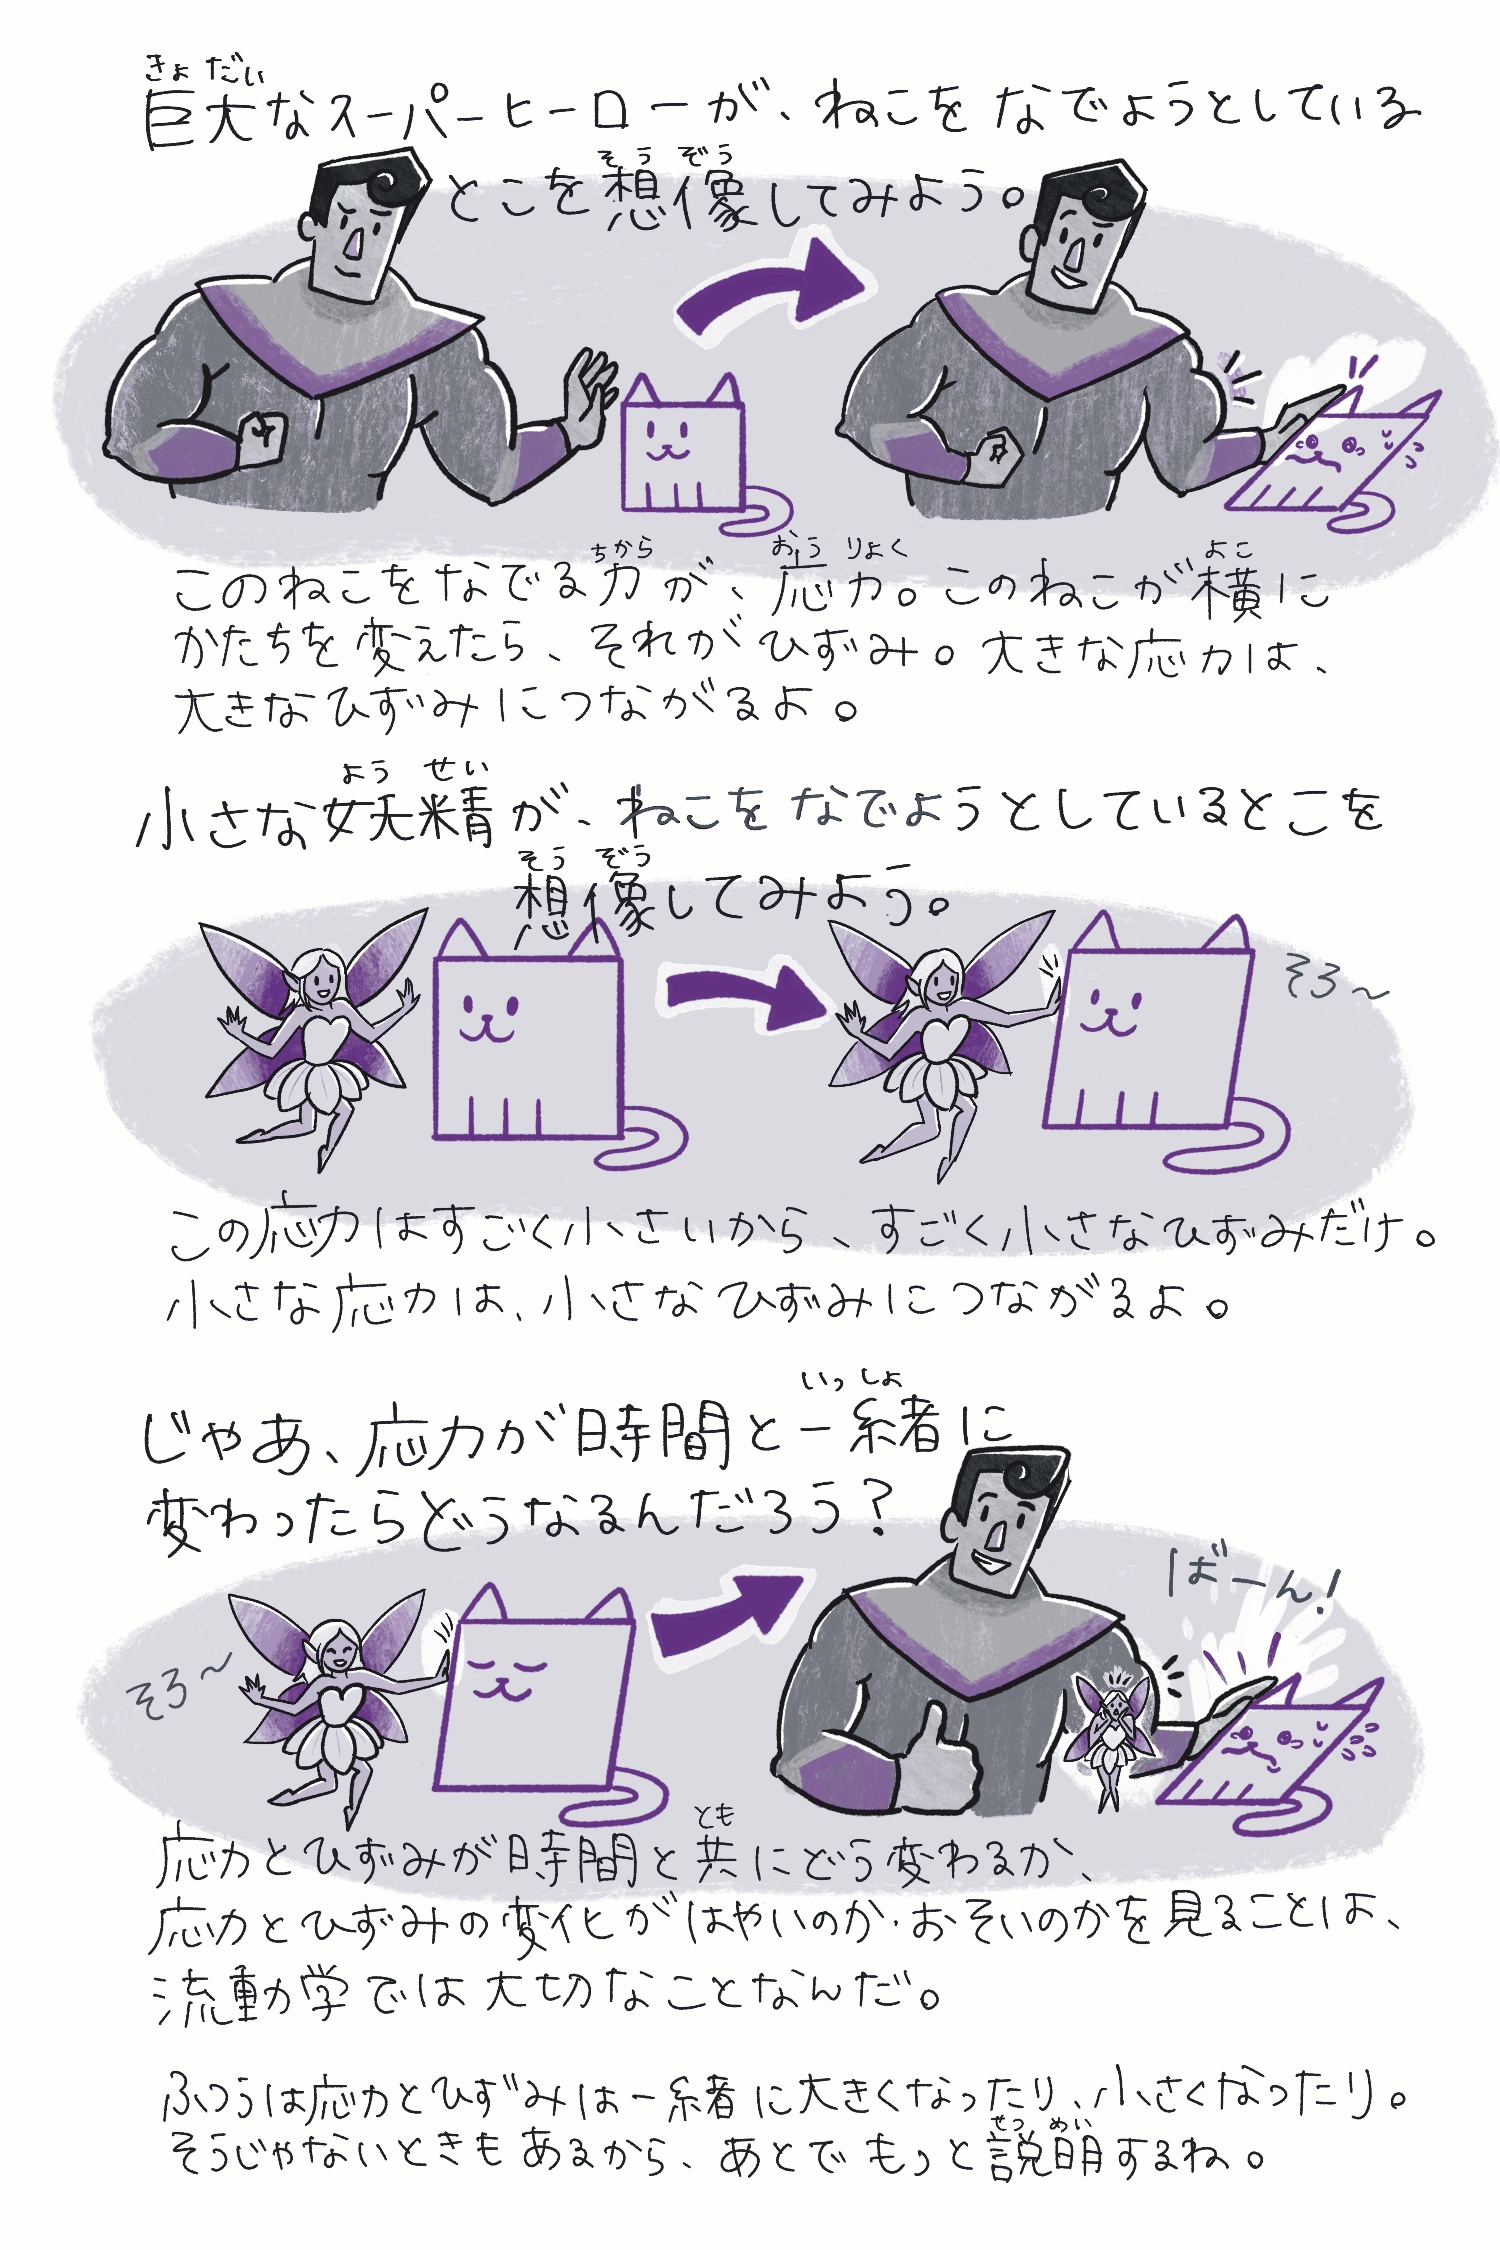 きょ だい
巨大なスーパーヒーローが、ねこをなでようとしている
そう ぞう
とこを想像してみよう。
ちから おう りょく よこ
このねこをなでる力が、応力。このねこが横に
かたちを変えたら、それがひずみ。大きな応力は、
大きなひずみにつながるよ。
よう せい
小さな妖精が、ねこをなでようとしているとこを
そう ぞう
想像してみよう。
そろ〜
この応力はすごく小さいから、すごく小さなひずみだけ。
小さな応力は、小さなひずみにつながるよ。
いっ しょ
じゃあ、応力が時間と一緒に
変わったらどうなるんだろう？
ばーん!
そろ〜
とも
応力とひずみが時間と共にどう変わるか、
応力とひずみの変化がはやいのか・おそいのかを見ることは、
流動学では大切なことなんだ。
ふつうは応力とひずみは一緒に大きくなったり、小さくなったり。
せつ めい
そうじゃないときもあるから、あとでもっと説明するね。